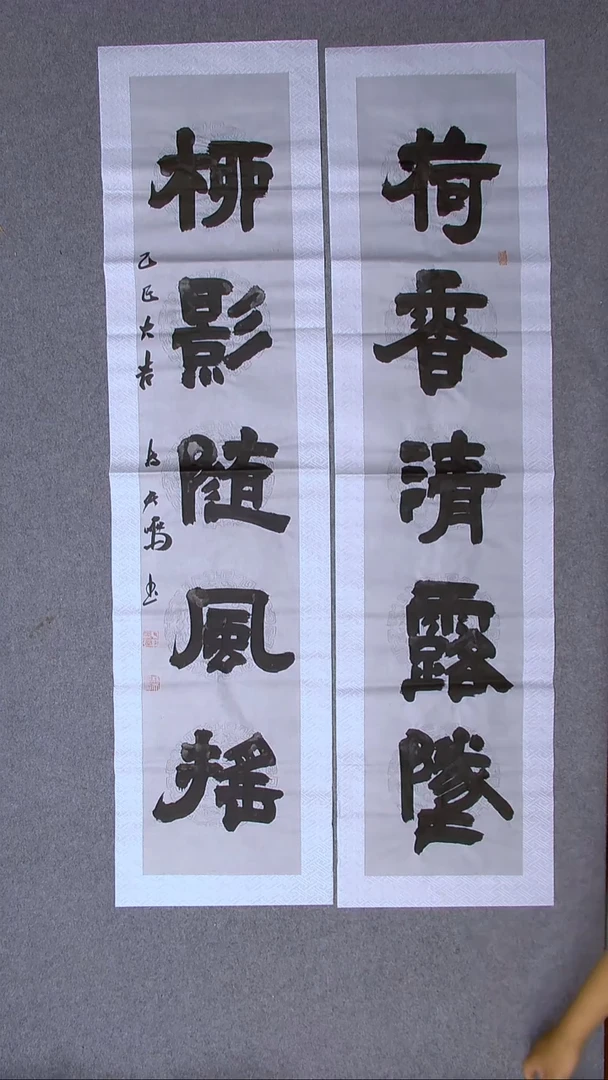 荷香清露墜
柳影隨風搖
乙巳大吉